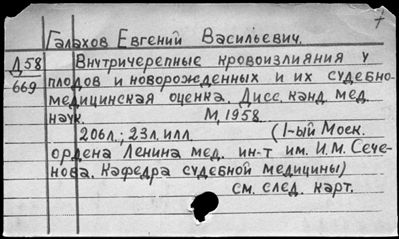 7
Галахов Евгений Васильевич.
Д58 Внутричерепные кровоизлияния у
669 плодов и новорожденных и их судебно-
медицинская оценка. Дисс. канд. мед.
наук. М, 1958.
206л.; 23л. илл. (1-ый Моск.
ордена Ленина мед. ин-т им. И.М. Сече-
нова. Кафедра судебной медицины)
см. след. карт.